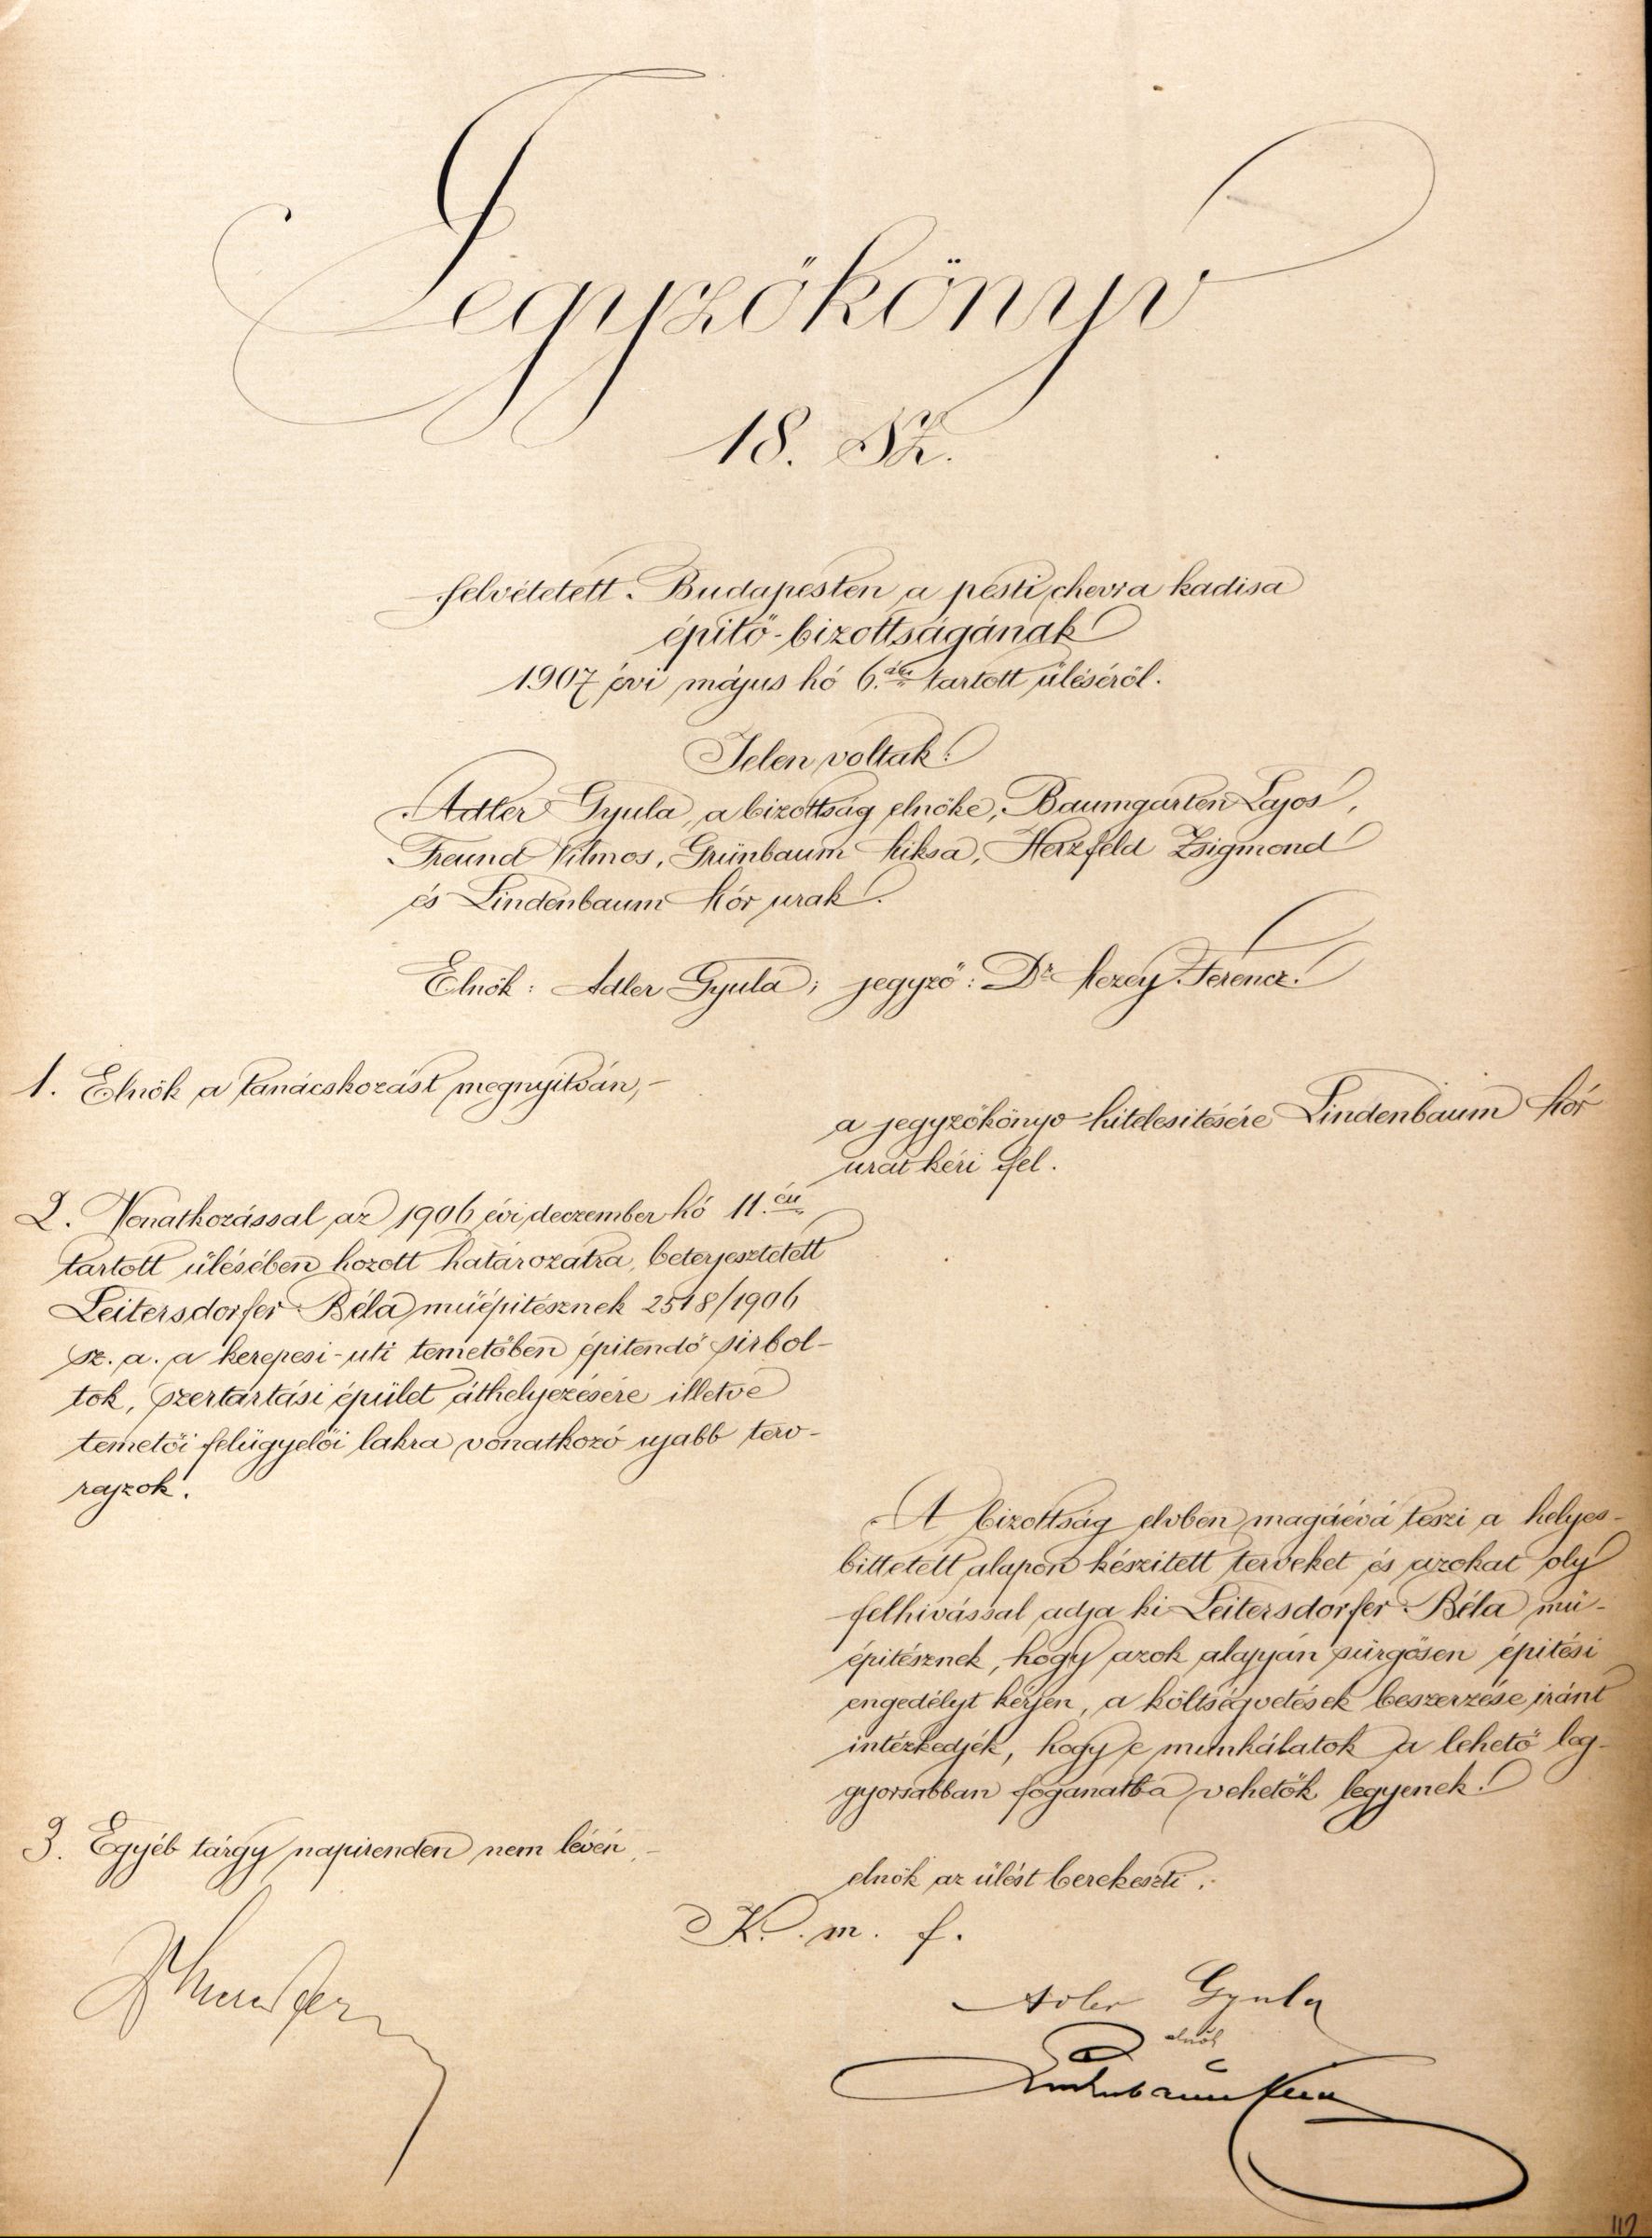 Jegyzőkönyv
18. Sz.
felvétetett Budapesten a pesti chevra kadisa
épitő-bizottságának
1907 évi május hó 6.án tartott üléséről.
Jelen voltak:
Adler Gyula, a bizottság elnöke, Baumgarten Lajos,
Freund Vilmos, Grünbaum Miksa, Herzfeld Zsigmond
és Lindenbaum Mór urak.
Elnök: Adler Gyula; jegyző: Dr Mezey Ferencz.
1. Elnök a tanácskozást megnyitván,-
a jegyzőkönyv hitelesitésére Lindenbaum Mór
urat kéri fel.
2. Vonatkozással az 1906 évi deczember hó 11.én
tartott ülésében hozott határozatra, beterjesztetett
Leitersdorfer Béla müépitésznek 2518/1906
sz. a. a kerepesi-uti temetőben épitendő sirbol-
tok, szertartási épület áthelyezésére illetve
temetői felügyelői lakra vonatkozó ujabb terv-
rajzok.
A bizottság elvben magáévá teszi a helyes-
bittetett alapon készitett terveket és azokat oly
felhivással adja ki Leitersdorfer Béla mü-
épitésznek, hogy azok alapján sürgősen épitési
engedélyt kérjen, a költségvetések beszerzése iránt
intézkedjék, hogy e munkálatok a lehető leg-
gyorsabban foganatba vehetők legyenek.
3. Egyéb tárgy napirenden nem lévén,-
elnök az ülést berekeszti.-
K. m. f.
Adler Gyula
elnök
Lindenbaum Mór
112